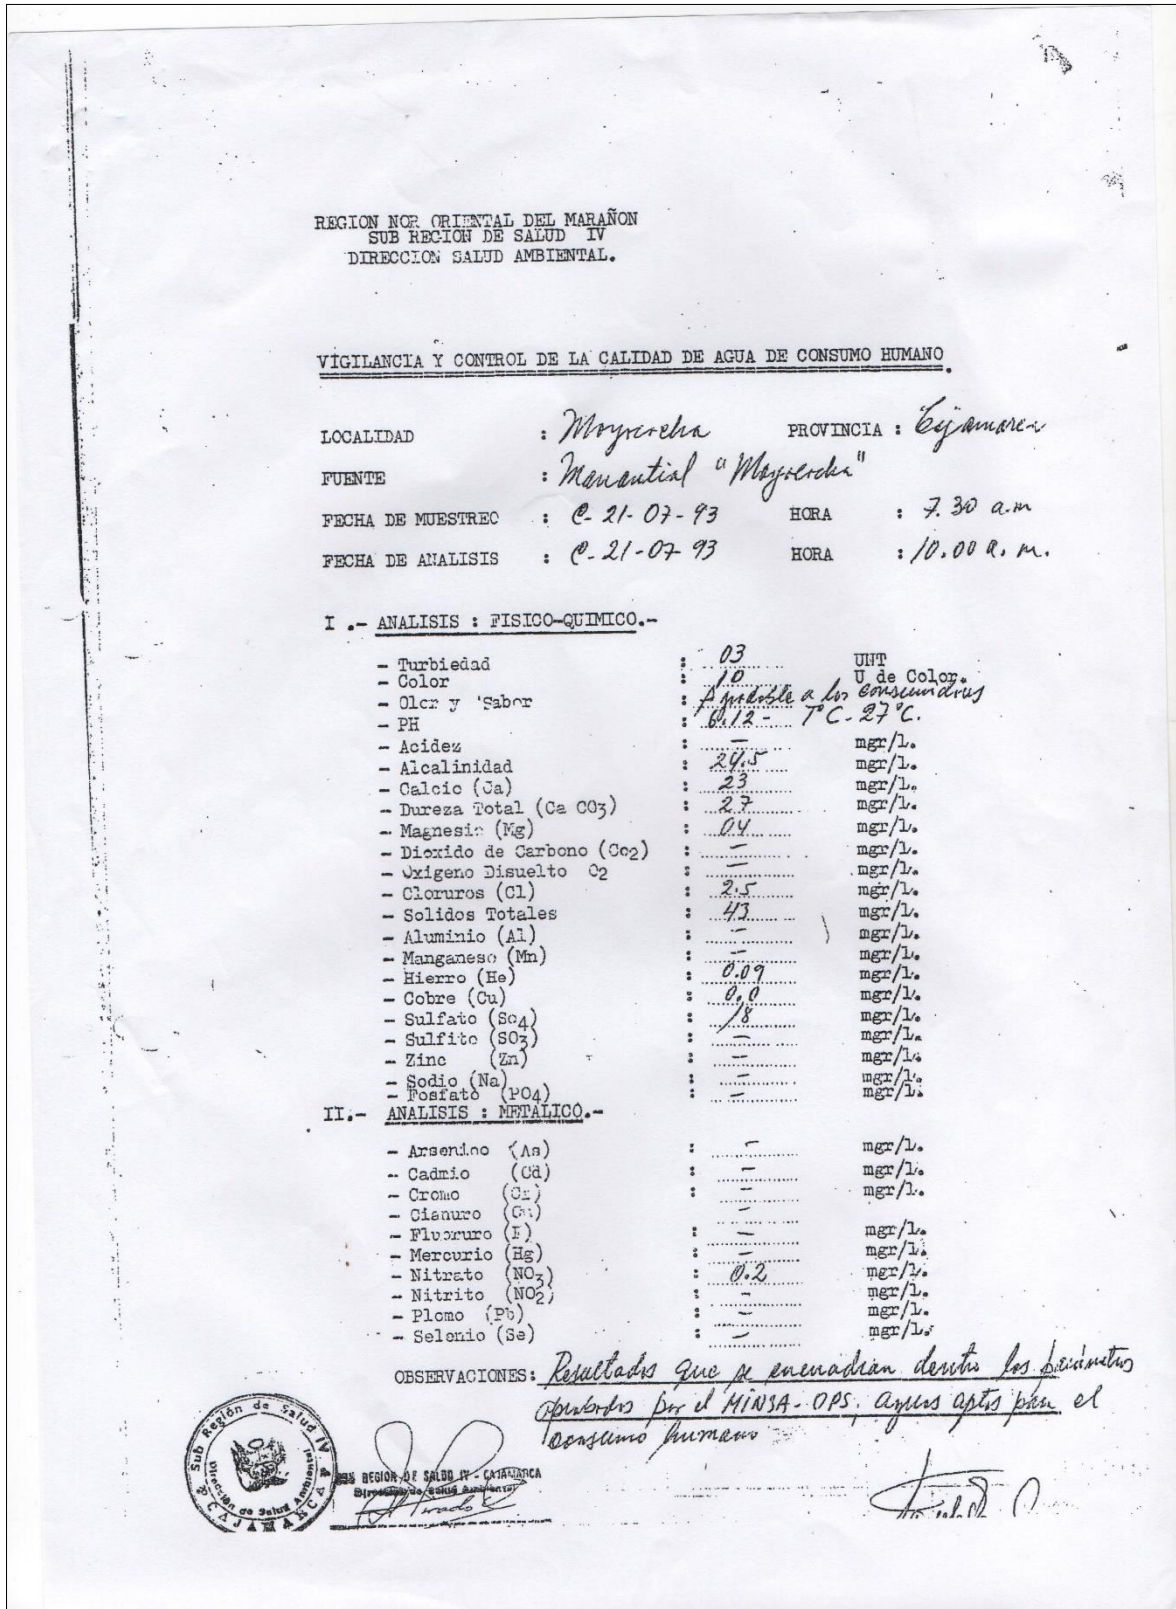 REGION NOR ORIENTAL DEL MARAÑON
SUB REGION DE SALUD IV
DIRECCION SALUD AMBIENTAL.
VIGILANCIA Y CONTROL DE LA CALIDAD DE AGUA DE CONSUMO HUMANO.
LOCALIDAD : PROVINCIA : Cajamarca
FUENTE : Manantial
FECHA DE MUESTREO : C- 21-07-93 HORA : 7.30 a.m
FECHA DE ANALISIS : C-21-07-93 HORA : 10.00 a.m.
I .- ANALISIS : FISICO-QUIMICO.-
- Turbiedad : 03 UNT
- Color : 10 U de Color.
- Olor y Sabor : Agradable a los consumidores
- PH : 6.12 - T°C - 27°C.
- Acidez : — mgr/l.
- Alcalinidad : 24.5 mgr/l.
- Calcio (Ca) : 23 mgr/l.
- Dureza Total (Ca CO3) : 27 mgr/l.
- Magnesio (Mg) : 04 mgr/l.
- Dioxido de Carbono (Co2) : — mgr/l.
- Oxigeno Disuelto O2 : — mgr/l.
- Cloruros (Cl) : 2.5 mgr/l.
- Solidos Totales : 43 mgr/l.
- Aluminio (Al) : — mgr/l.
- Manganeso (Mn) : — mgr/l.
- Hierro (He) : 0.09 mgr/l.
- Cobre (Cu) : 0.0 mgr/l.
- Sulfato (So4) : 18 mgr/l.
- Sulfito (SO3) : — mgr/l.
- Zinc (Zn) : — mgr/l.
- Sodio (Na) : — mgr/l.
- Fosfato (PO4) : — mgr/l.
II.- ANALISIS : METALICO.-
- Arsenico (As) : — mgr/l.
- Cadmio (Cd) : — mgr/l.
- Cromo (Cr) : — mgr/l.
- Cianuro (Cn) —
- Fluoruro (F) : — mgr/l.
- Mercurio (Hg) : — mgr/l.
- Nitrato (NO3) : 0.2 mgr/l.
- Nitrito (NO2) : — mgr/l.
- Plomo (Pb) : — mgr/l.
- Selenio (Se) : — mgr/l.
OBSERVACIONES: Resultados que se encuadran dentro los parámetros
aprobados por el MINSA - OPS. aguas aptas para el
consumo humano
Sub Región de Salud IV
Dirección de Salud Ambiental
CAJAMARCA
REGION DE SALUD IV - CAJAMARCA
Dirección de Salud Ambiental